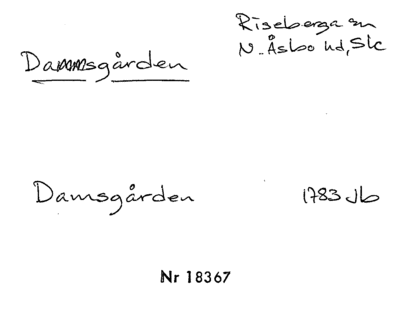 Riseberga sn
N. Åsbo hd, Slc
Dammsgården
Damsgården 1783 Jb
Nr 18367